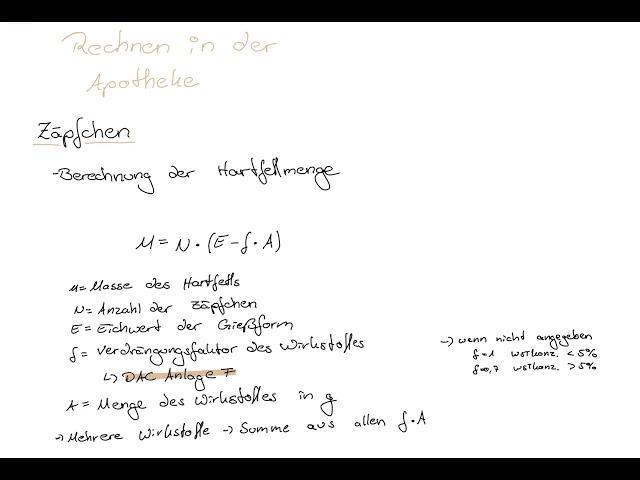 Rechnen in der
Apotheke
Zäpfchen
- Berechnung der Hartfettmenge
M = N • (E - f • A)
M = Masse des Hartfetts
N = Anzahl der Zäpfchen
E = Eichwert der Gießform
f = Verdrängungsfaktor des Wirkstoffes
↳ DAC Anlage F
→ wenn nicht angegeben
f = 1 WSTkonz. < 5%
f = 0,7 WSTkonz. > 5%
A = Menge des Wirkstoffes in g
→ Mehrere Wirkstoffe → Summe aus allen f • A